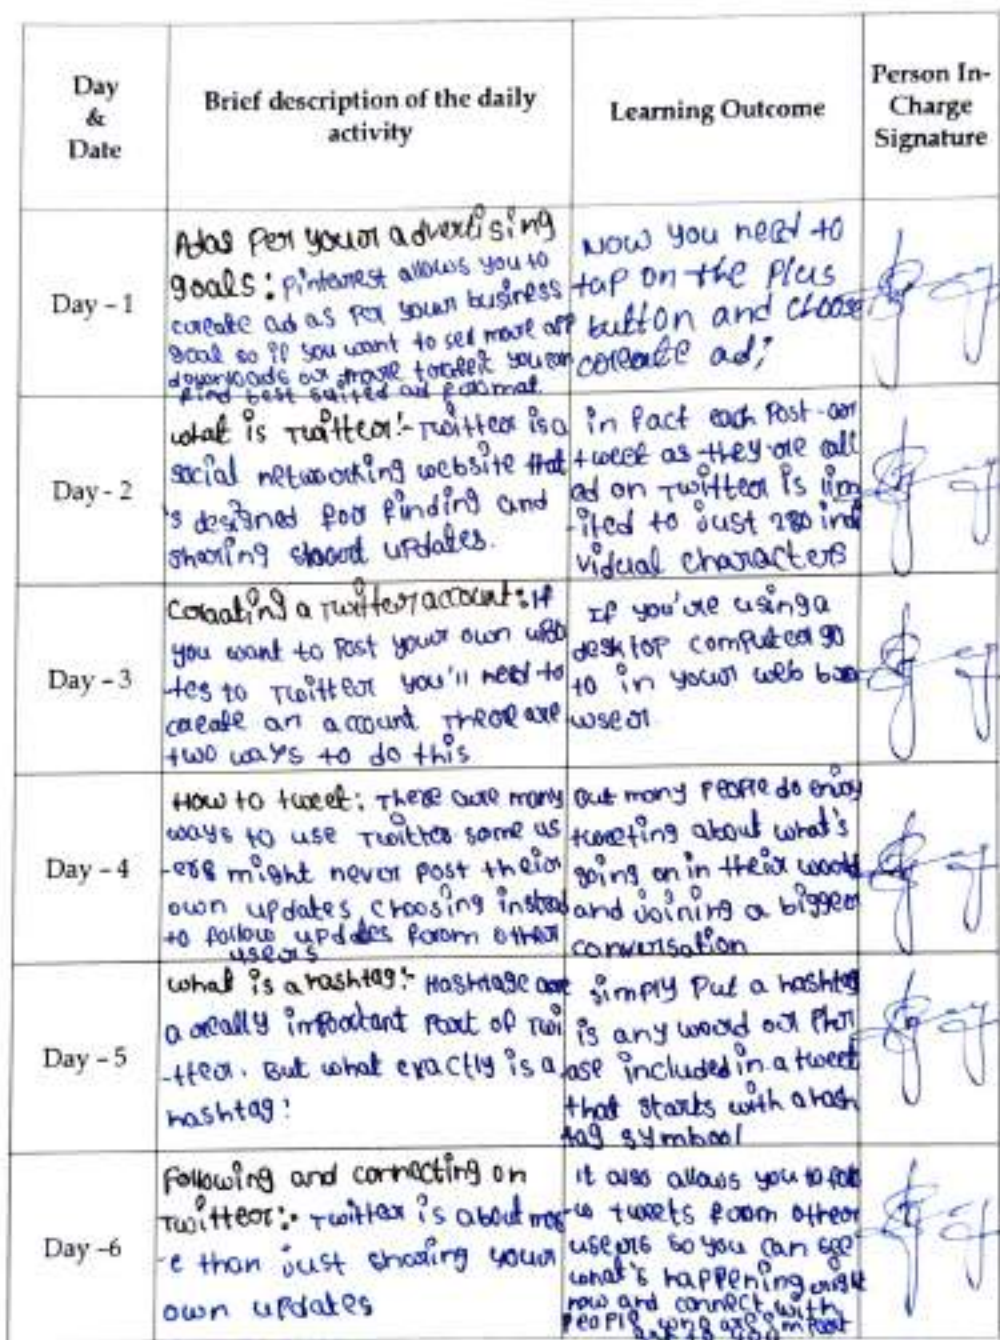 Day
&
Date
Brief description of the daily
activity
Learning Outcome
Person In-
Charge
Signature
Day – 1
Adas Per your advertising
goals: pinterest allows you to
create ad as per your business
goal so if you want to sell more app
downloads or more you can
find best suited ad format.
Now you need to
tap on the Plus
button and choose
create ad;
Day - 2
what is Twitter:- Twitter is a
social networking website that
's designed for finding and
sharing short updates.
in fact each Post or
tweet as they are call
ed on Twitter is lim
-ited to just 280 indi
vidual characters
Day – 3
Creating a Twitter account: If
you want to Post your own upda
tes to Twitter you'll need to
create an account There are
two ways to do this
If you're using a
desktop computer go
to in your web bro
wser
Day – 4
How to tweet: There are many
ways to use Twitter some us
-ers might never post their
own updates, choosing instead
to follow updates from other
users
but many People do enjoy
tweeting about what's
going on in their world
and joining a bigger
conversation
Day – 5
what is a hashtag:- Hashtage are
a really important Part of Twi
-tter. But what exactly is a
hashtag:
simply Put a hashtag
is any word or Phr
ase included in a tweet
that starts with a hash
tag symbool
Day –6
Following and connecting on
Twitter:- Twitter is about mor
-e than just sharing your
own updates
it also allows you to follo
-w tweets from other
users so you can see
what's happening right
now and connect with
People who are import